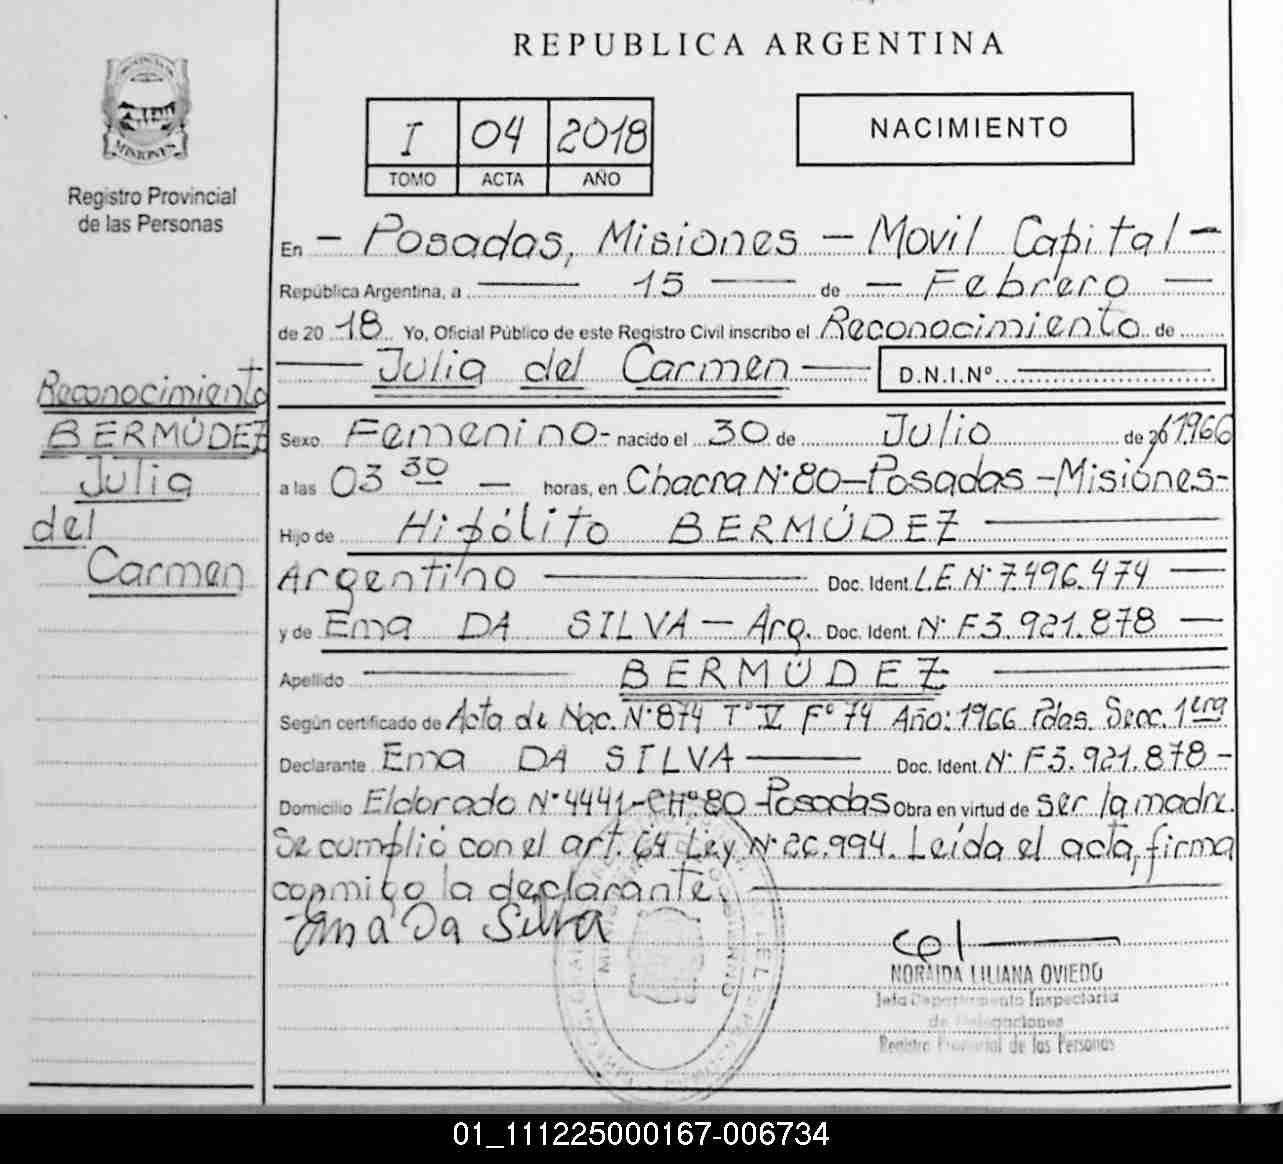 REPUBLICA ARGENTINA
I 04 2018
TOMO ACTA AÑO
NACIMIENTO
MISIONES
Registro Provincial
de las Personas
En - Posadas, Misiones - Movil Capital -
República Argentina, a 15 de - Febrero
de 20 18 Yo, Oficial Público de este Registro Civil inscribo el Reconocimiento de
Julia del Carmen D.N.I.Nº
Reconocimiento
BERMÚDEZ
Julia
del
Carmen
Sexo Femenino - nacido el 30 de Julio de 1966
a las 03 30 - horas, en Chacra Nº 80 - Posadas - Misiones -
Hijo de Hipólito BERMÚDEZ
Argentino Doc. Ident. L.E. Nº 7.496.474
y de Ema DA SILVA - Arg. Doc. Ident. Nº F3.921.878
Apellido BERMÚDEZ
Según certificado de Acta de Nac. Nº 874 Tº V Fº 74 Año: 1966 Pdas. Secc. 1era
Declarante Ema DA SILVA Doc. Ident. Nº F3.921.878 -
Domicilio Eldorado Nº 4441 - CHº 80 - Posadas Obra en virtud de ser la madre.
Se cumplió con el art. 64 Ley Nº 26.994. Leída el acta, firma
conmigo la declarante.
Ema Da Silva
NORAIDA LILIANA OVIEDO
Jefa Departamento Inspectoría
de Delegaciones
Registro Provincial de las Personas
01_111225000167-006734